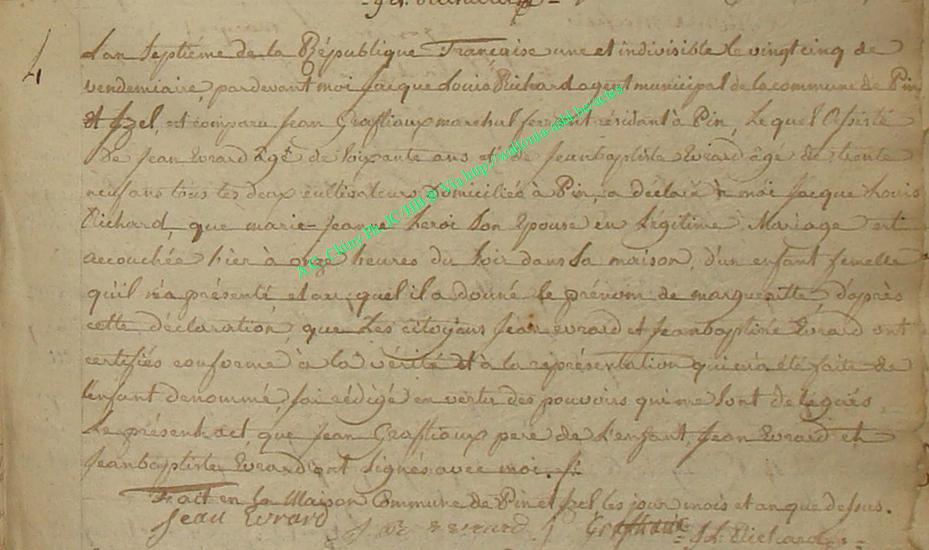 4
L'an Septiéme de la République Françoise une et indivisible le vingt cinq de
vendemiaire, pardevant moi Jacque Louis Richard agent municipal de la commune de Pin
et Izel, est comparu Jean Graftiaux marechal ferrant résidant à Pin, Lequel assisté
de Jean Evrard agé de soixante ans et de Jeanbaptiste Evrard âge de trente
neuf ans tous les deux cultivateurs domiciliés à Pin, a déclaré à moi Jacque Louis
Richard, que marie-Jeanne son Epouse en Légitime Mariage est
accouchée hier à onze heures du soir dans sa maison, d'un enfant femelle
qu'il m'a présenté et au quel il a donné le prénom de margueritte, d'après
cette déclaration, que Les citoyens Jean evrard et Jeanbaptiste Evrard ont
certifiés conforme à la vérité et à la représentation qui m'a été faite de
l'enfant denommé, j'ai rédigé en vertu des pouvoirs qui me sont delegués
Le présent act, que Jean Graftiaux pere de l'enfant, Jean Evrard et
Jeanbaptiste Evrard ont Signés avec moi.
Fait en la Maison Commune de Pin et Izel les jour mois et an que dessus.
Jean Evrard J B evrard Graftiaux Richard
A.G. Chiny Ph. JC/HB @ Via http://wallonia-asbl.be